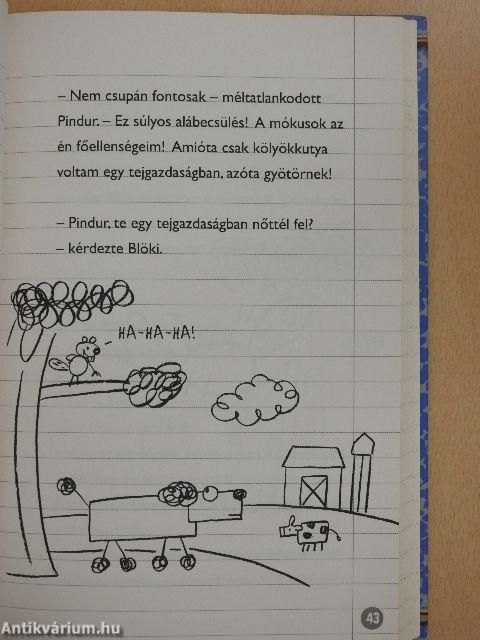 – Nem csupán fontosak – méltatlankodott
Pindur. – Ez súlyos alábecsülés! A mókusok az
én főellenségeim! Amióta csak kölyökkutya
voltam egy tejgazdaságban, azóta gyötörnek!
– Pindur, te egy tejgazdaságban nőttél fel?
– kérdezte Blöki.
HA-HA-HA!
43
Antikvárium.hu